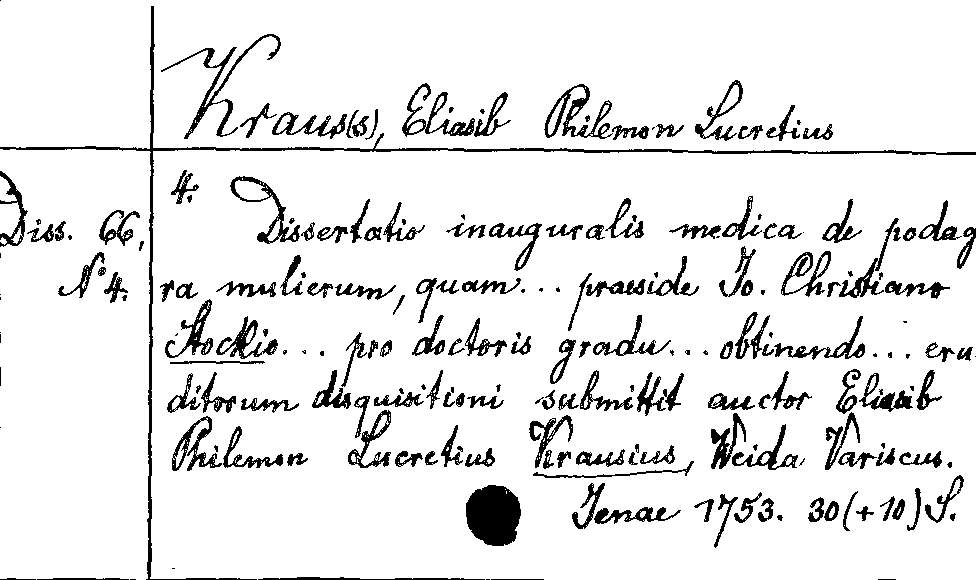 Kraus(s), Eliasib Philemon Lucretius
Diss. 66,
N° 4.
4.
Dissertatio inauguralis medica de podag
ra mulierum, quam... praeside Jo. Christiano
Stockio... pro doctoris gradu... obtinendo... eru
ditorum disquisitioni submittit auctor Eliasib
Philemon Lucretius Krausius, Weida Variscus.
Jenae 1753. 30(+10) S.